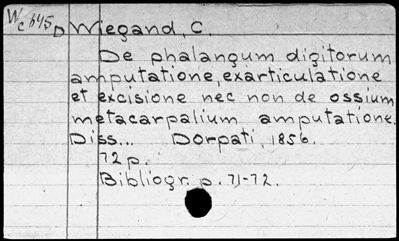 Wc 645 D Wiegand, C.
De phalangum digitorum
amputatione, exarticulatione
et excisione nec non de ossium
metacarpalium amputatione.
Diss... Dorpati, 1856.
72 p.
Bibliogr. p. 71-72.